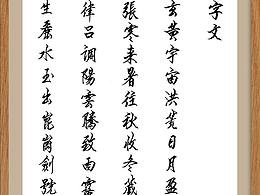 字文
玄黃宇宙洪荒日月盈
張寒来暑往秋收冬藏
律呂調陽雲騰致雨露
生麗水玉出崑崗劍號